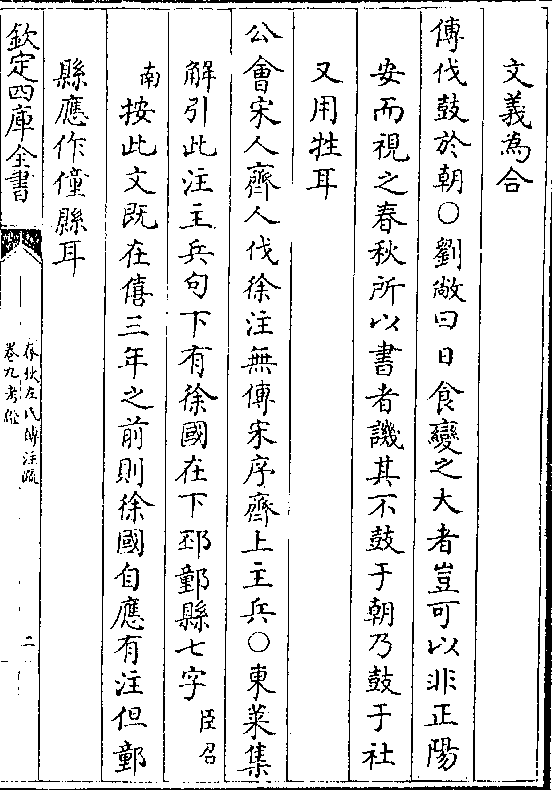 文義為合
傳伐鼓於朝○劉敞曰日食變之大者豈可以非正陽
安而視之春秋所以書者譏其不鼓于朝乃鼓于社
又用牲耳
公會宋人齊人伐徐注無傳宋序齊上主兵○東萊集
解引此注主兵句下有徐國在下邳鄞縣七字臣召
南按此文既在僖三年之前則徐國自應有注但鄞
縣應作僮縣耳
欽定四庫全書
春秋左氏傳注疏
卷九考證
二